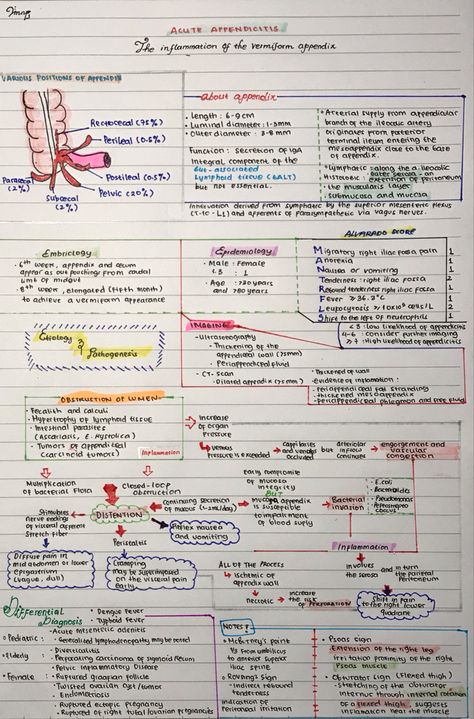 ACUTE APPENDICITIS
The inflammation of the vermiform appendix
VARIOUS POSITIONS OF APPENDIX
Rectocecal (75%)
Perileal (0.5%)
Postileal (0.5%)
Pelvic (20%)
Paracecal (2%)
Subcecal (2%)
about appendix
• Length: 6-9cm
• Luminal diameter: 1-3mm
• Outer diameter: 3-8mm
Function: secretion of IgA
Integral component of the
Gut-associated
Lymphoid tissue (GALT)
but not essential.
• Arterial supply from appendicular
branch of the ileocolic artery
originates from posterior
terminal ileum entering the
mesoappendix close to the base
of appendix.
• Lymphatic: along the a. ileocolic
extension of peritoneum
the muscularis layer
submucosa and mucosa
Innervation derived from symphatetic by the superior mesenteric plexus
(T10-L1) and afferents of parasympathetic via vagus nerves.
Embriology
• 6th week, appendix and cecum
appear as out pouchings from caudal
limit of midgut
• 8th week, elongated
to achieve a vermiform appearance
Epidemiology
• Male : Female
1.3 : 1
• Age: >30 years
and >80 years
ALVARADO SCORE
Migratory right iliac fossa pain 1
Anorexia 1
Nausea or vomiting 1
Tenderness: right iliac fossa 2
Rebound tenderness right iliac fossa 1
Fever ≥ 36.3°C 1
Leukocytosis ≥ 10x10⁹ cells/L 2
Shift to the left of neutrophils 1
< 3 : low likelihood of appendicitis
4-6 : consider further imaging
≥ 7 : High likelihood of appendicitis
Etiology & Pathogenesis
IMAGING
- Ultrasonography
• Thickening of the
appendiceal wall (>5mm)
• Periappendiceal fluid
- CT-Scan
• Dilated appendix (>5mm)
• Thickened of wall
• Evidence of inflamation:
- Periappendiceal fat stranding
- thickened mesoappendix
- Periappendiceal phlegmon and free fluid
OBSTRUCTION OF LUMEN
• Fecalith and calculi
• Hypertrophy of lymphoid tissue
• Intestinal parasites
(Ascariasis, E. Hystolica)
• Tumors of appendiceal
(carcinoid tumors)
Increase
of organ
Pressure
venous
Pressure is exceeded
capillaries
and venules
occluded
but
arteriolar
inflow
continues
engorgement and
vascular
congestion
Inflamation
Multiplication
of bacterial flora
Closed-loop
obstruction
DISTENTION
Stimulates
nerve endings
of visceral afferent
stretch fiber
Continuing secretion
of mucous (1-2mL/day)
Early compromise
of mucosa
integrity
BUT
Mucosa appendix
is susceptible
to impairment
of blood supply
Bacterial
invasion
• E. coli
• Bacteroides
• Pseudomonas
• Peptostreptococcus
Reflex nausea
and vomiting
Peristaltic
Diffuse pain in
mid abdomen or lower
epigastrium
(vague, dull)
Cramping
may be superimposed
on the visceral pain
early
ALL OF THE PROCESS
Ischemic of
appendix wall
Necrotic
increase
the risk
of PERFORATION
Inflammation
involves
the serosa
and in turn
the parietal
Peritoneum
Shift in pain
to the right lower
quadrant
Differential
Diagnosis
• Dengue fever
• Typhoid fever
• Pediatric :
- Acute mesenteric adenitis
- Generalized lymphadenopathy may be noted
• Elderly :
- Diverticulitis
- Perforating carcinoma of sigmoid rectum
- Pelvic Inflammatory Disease
• Female :
- Ruptured graafian follicle
- Twisted ovarian cyst/tumor
- Endometriosis
- Ruptured ectopic pregnancy
NOTES!
• McBurney's point
1/3 from umbilicus
to anterior superior
iliac spine
• Rovsing's sign
Indirect rebound
tenderness
Indication of
Peritoneal irritation
• Psoas sign
Extension of the right leg
Irritation proximity of the right
Psoas muscle
• Obturator sign (Flexed thigh)
Stretching of the obturator
internus through internal rotation
of a flexed thigh suggests
inflamation near the muscle